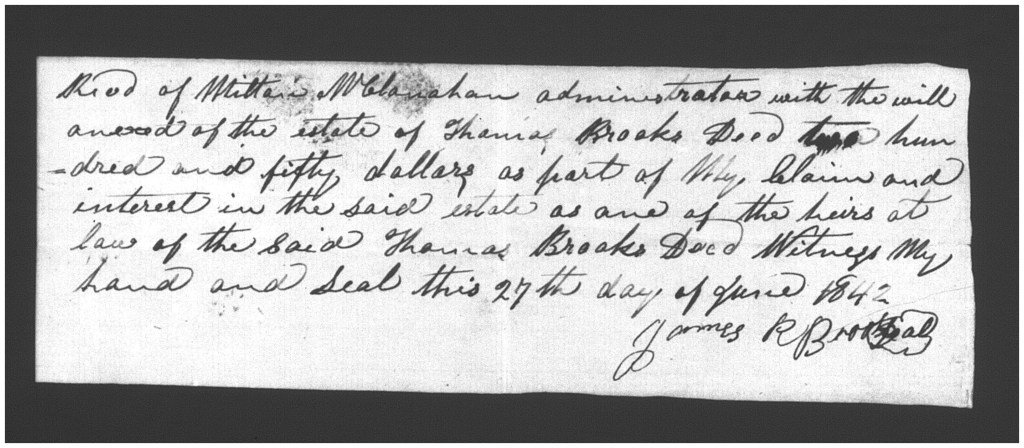 Recd of William McClanahan administrator with the will
anexed of the estate of Thomas Brooks Decd two hun
-dred and fifty dollars as part of My Claim and
interest in the said estate as one of the heirs at
law of the Said Thomas Brooks Decd Witness My
hand and Seal this 27th day of June 1842
James R Brooks Seal